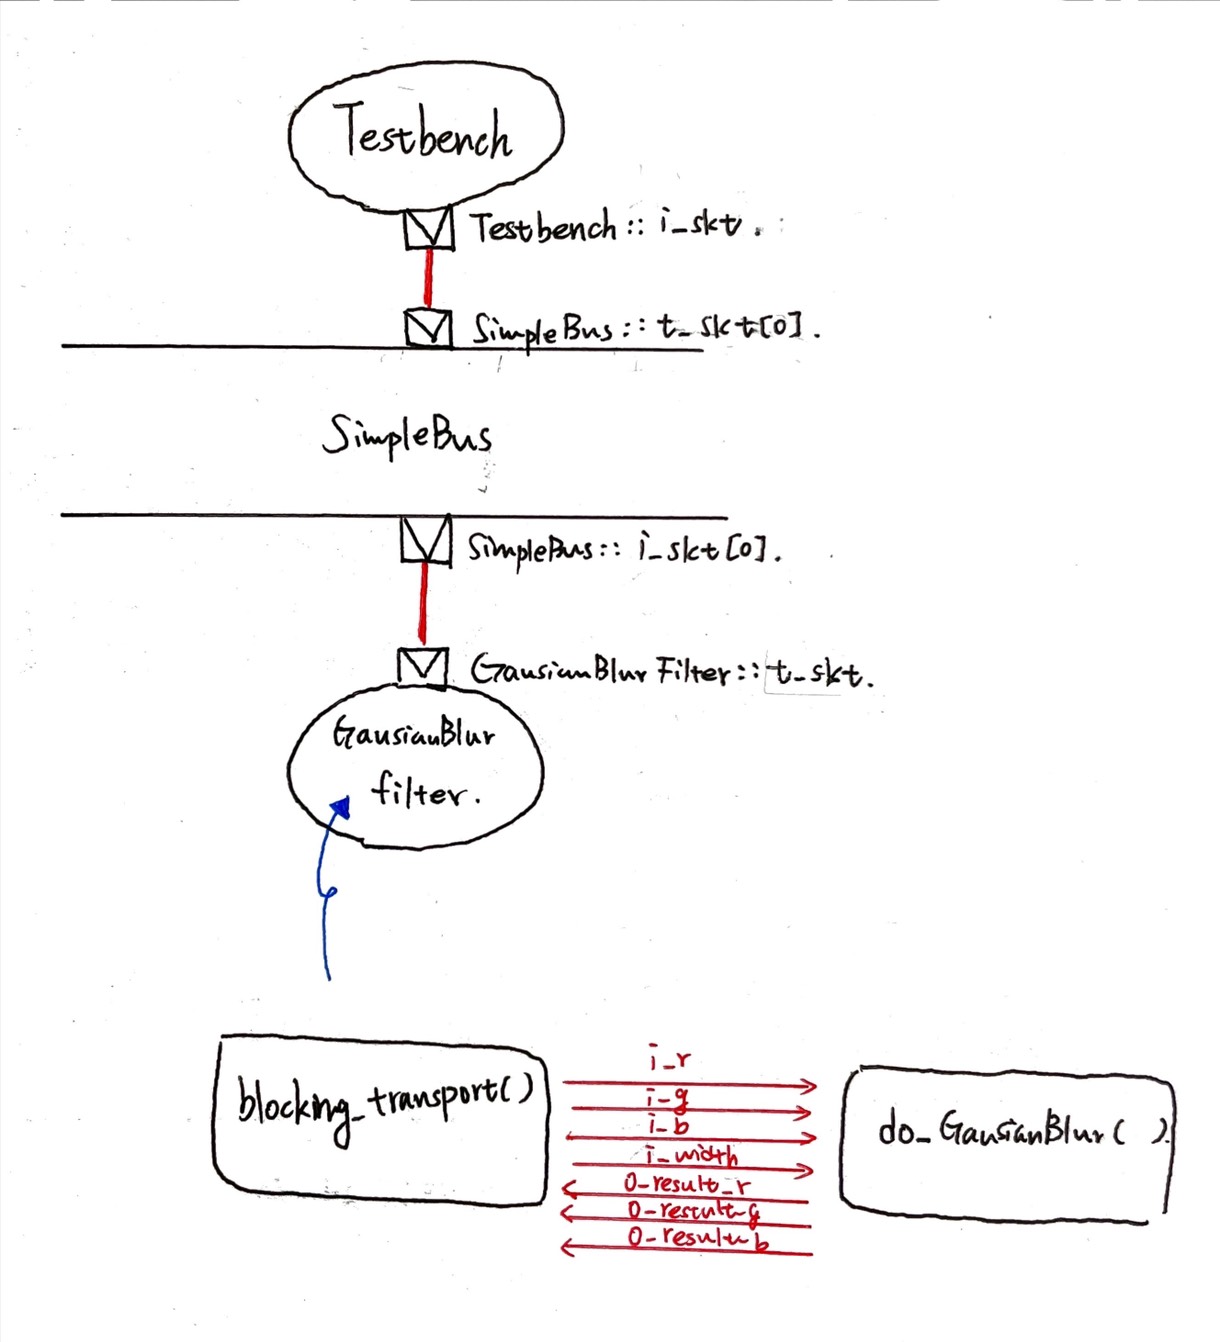 Testbench
Testbench :: i_skt.
SimpleBus :: t_skt[0].
SimpleBus
SimpleBus :: i_skt[0].
GausianBlur Filter :: t_skt.
GausianBlur
filter.
i_r
blocking_transport()
i_g
i_b
do_GausianBlur( ).
i_width
o_result_r
o_result_g
o_result_b